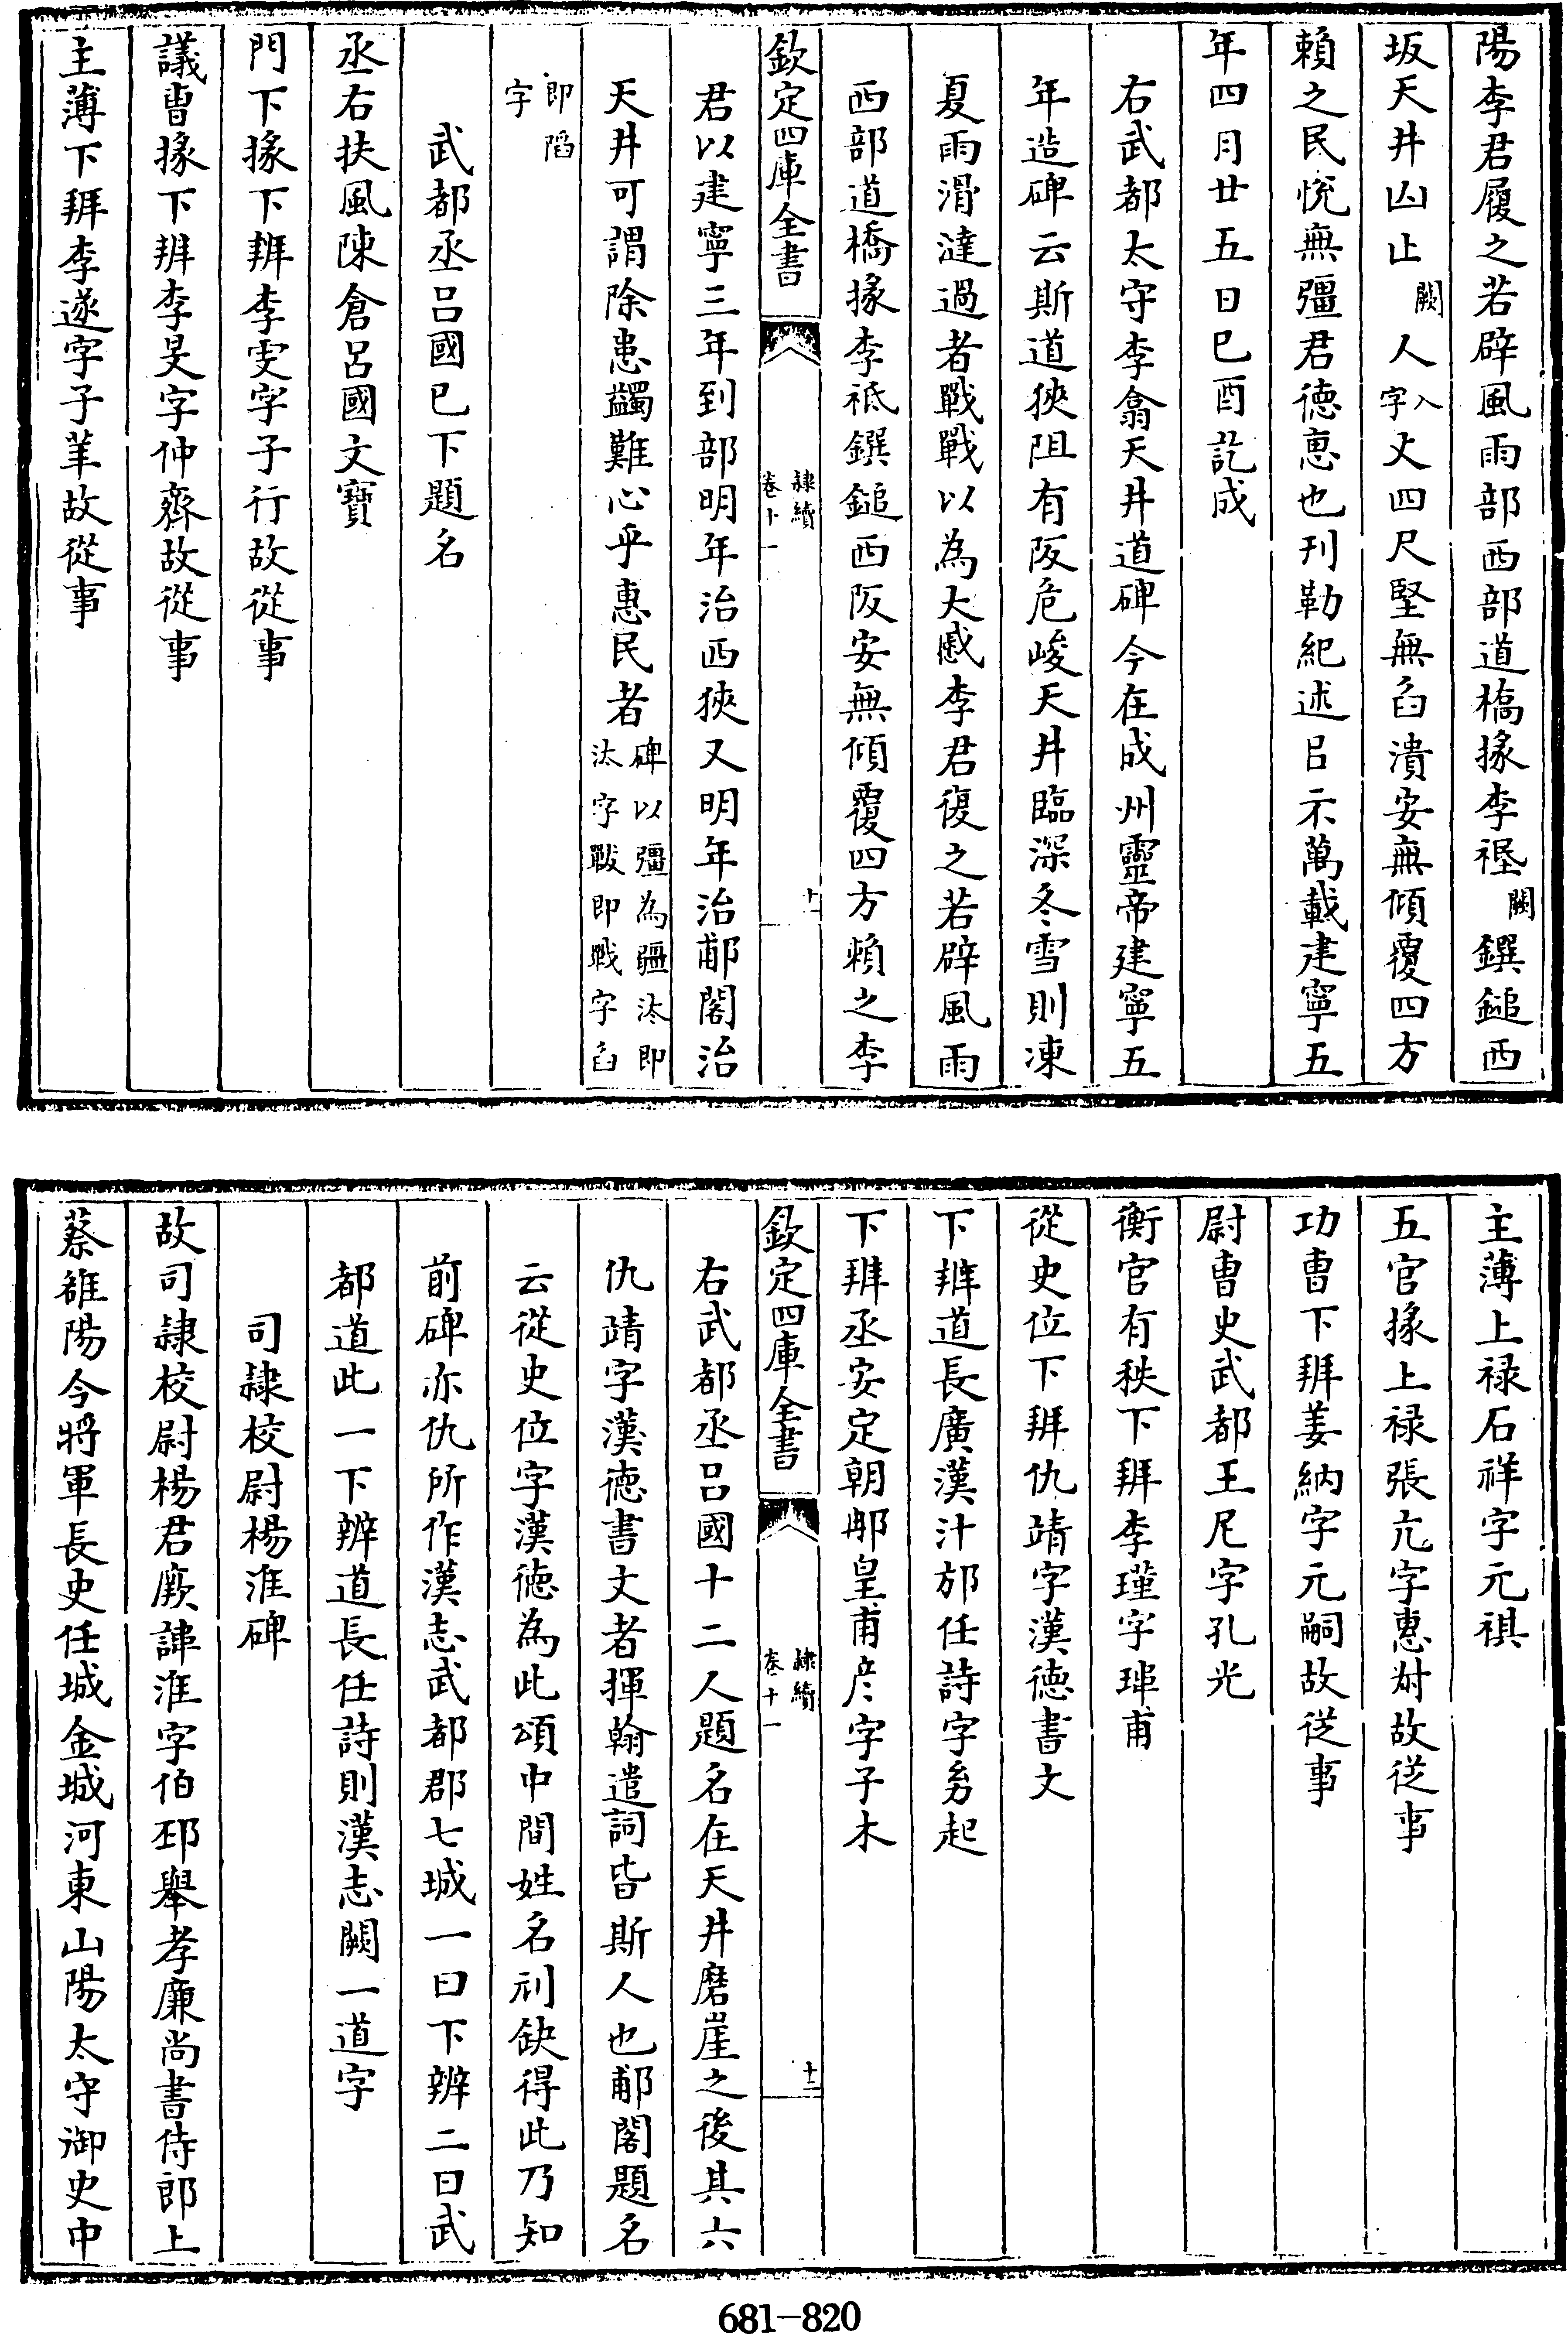 陽李君履之若辟風雨部西部道橋掾李禋闕鐉鎚西
坂天井山止闕人入字丈四尺堅無臽潰安無傾覆四方
賴之民悅無彊君德惠也刊勒紀述㠯示萬載建寧五
年四月廿五日巳酉訖成
右武都太守李翕天井道碑今在成州靈帝建寧五
年造碑云斯道狹阻有阪危峻天井臨深冬雪則凍
夏雨滑澾過者戰戰以為大慼李君復之若辟風雨
西部道橋掾李祗鐉鎚西阪安無傾覆四方賴之李
欽定四庫全書
隸續
卷十一
十一
君以建寧三年到部明年治西狹又明年治郙閣治
天井可謂除患蠲難心乎惠民者碑以彊為疆汰即
汰字戰即戰字臽
即陷
字
武都丞吕國已下題名
丞右扶風陳倉呂國文寶
門下掾下辨李旻字子行故從事
議曹掾下辨李旻字仲齊故從事
主薄下辨李遂字子華故從事
主薄上祿石祥字元祺
五官掾上祿張亢字惠尌故從事
功曹下辨姜納字元嗣故從事
尉曹史武都王尼字孔光
衡官有秩下辨李瑾字瑋甫
從史位下辨仇靖字漢德書文
下辨道長廣漢汁邡任詩字㓜起
下辨丞安定朝那皇甫彦字子木
欽定四庫全書
隸續
卷十一
十二
右武都丞吕國十二人題名在天井磨崖之後其六
仇靖字漢德書文者揮翰遣詞皆斯人也郙閣題名
云從史位字漢德為此頌中間姓名刓缺得此乃知
前碑亦仇所作漢志武都郡七城一曰下辨二曰武
都道此一下辨道長任詩則漢志闕一道字
司隸校尉楊淮碑
故司隸校尉楊君厥諱淮字伯邳舉孝廉尚書侍郎上
蔡雒陽令將軍長史任城金城河東山陽太守御史中
681-820